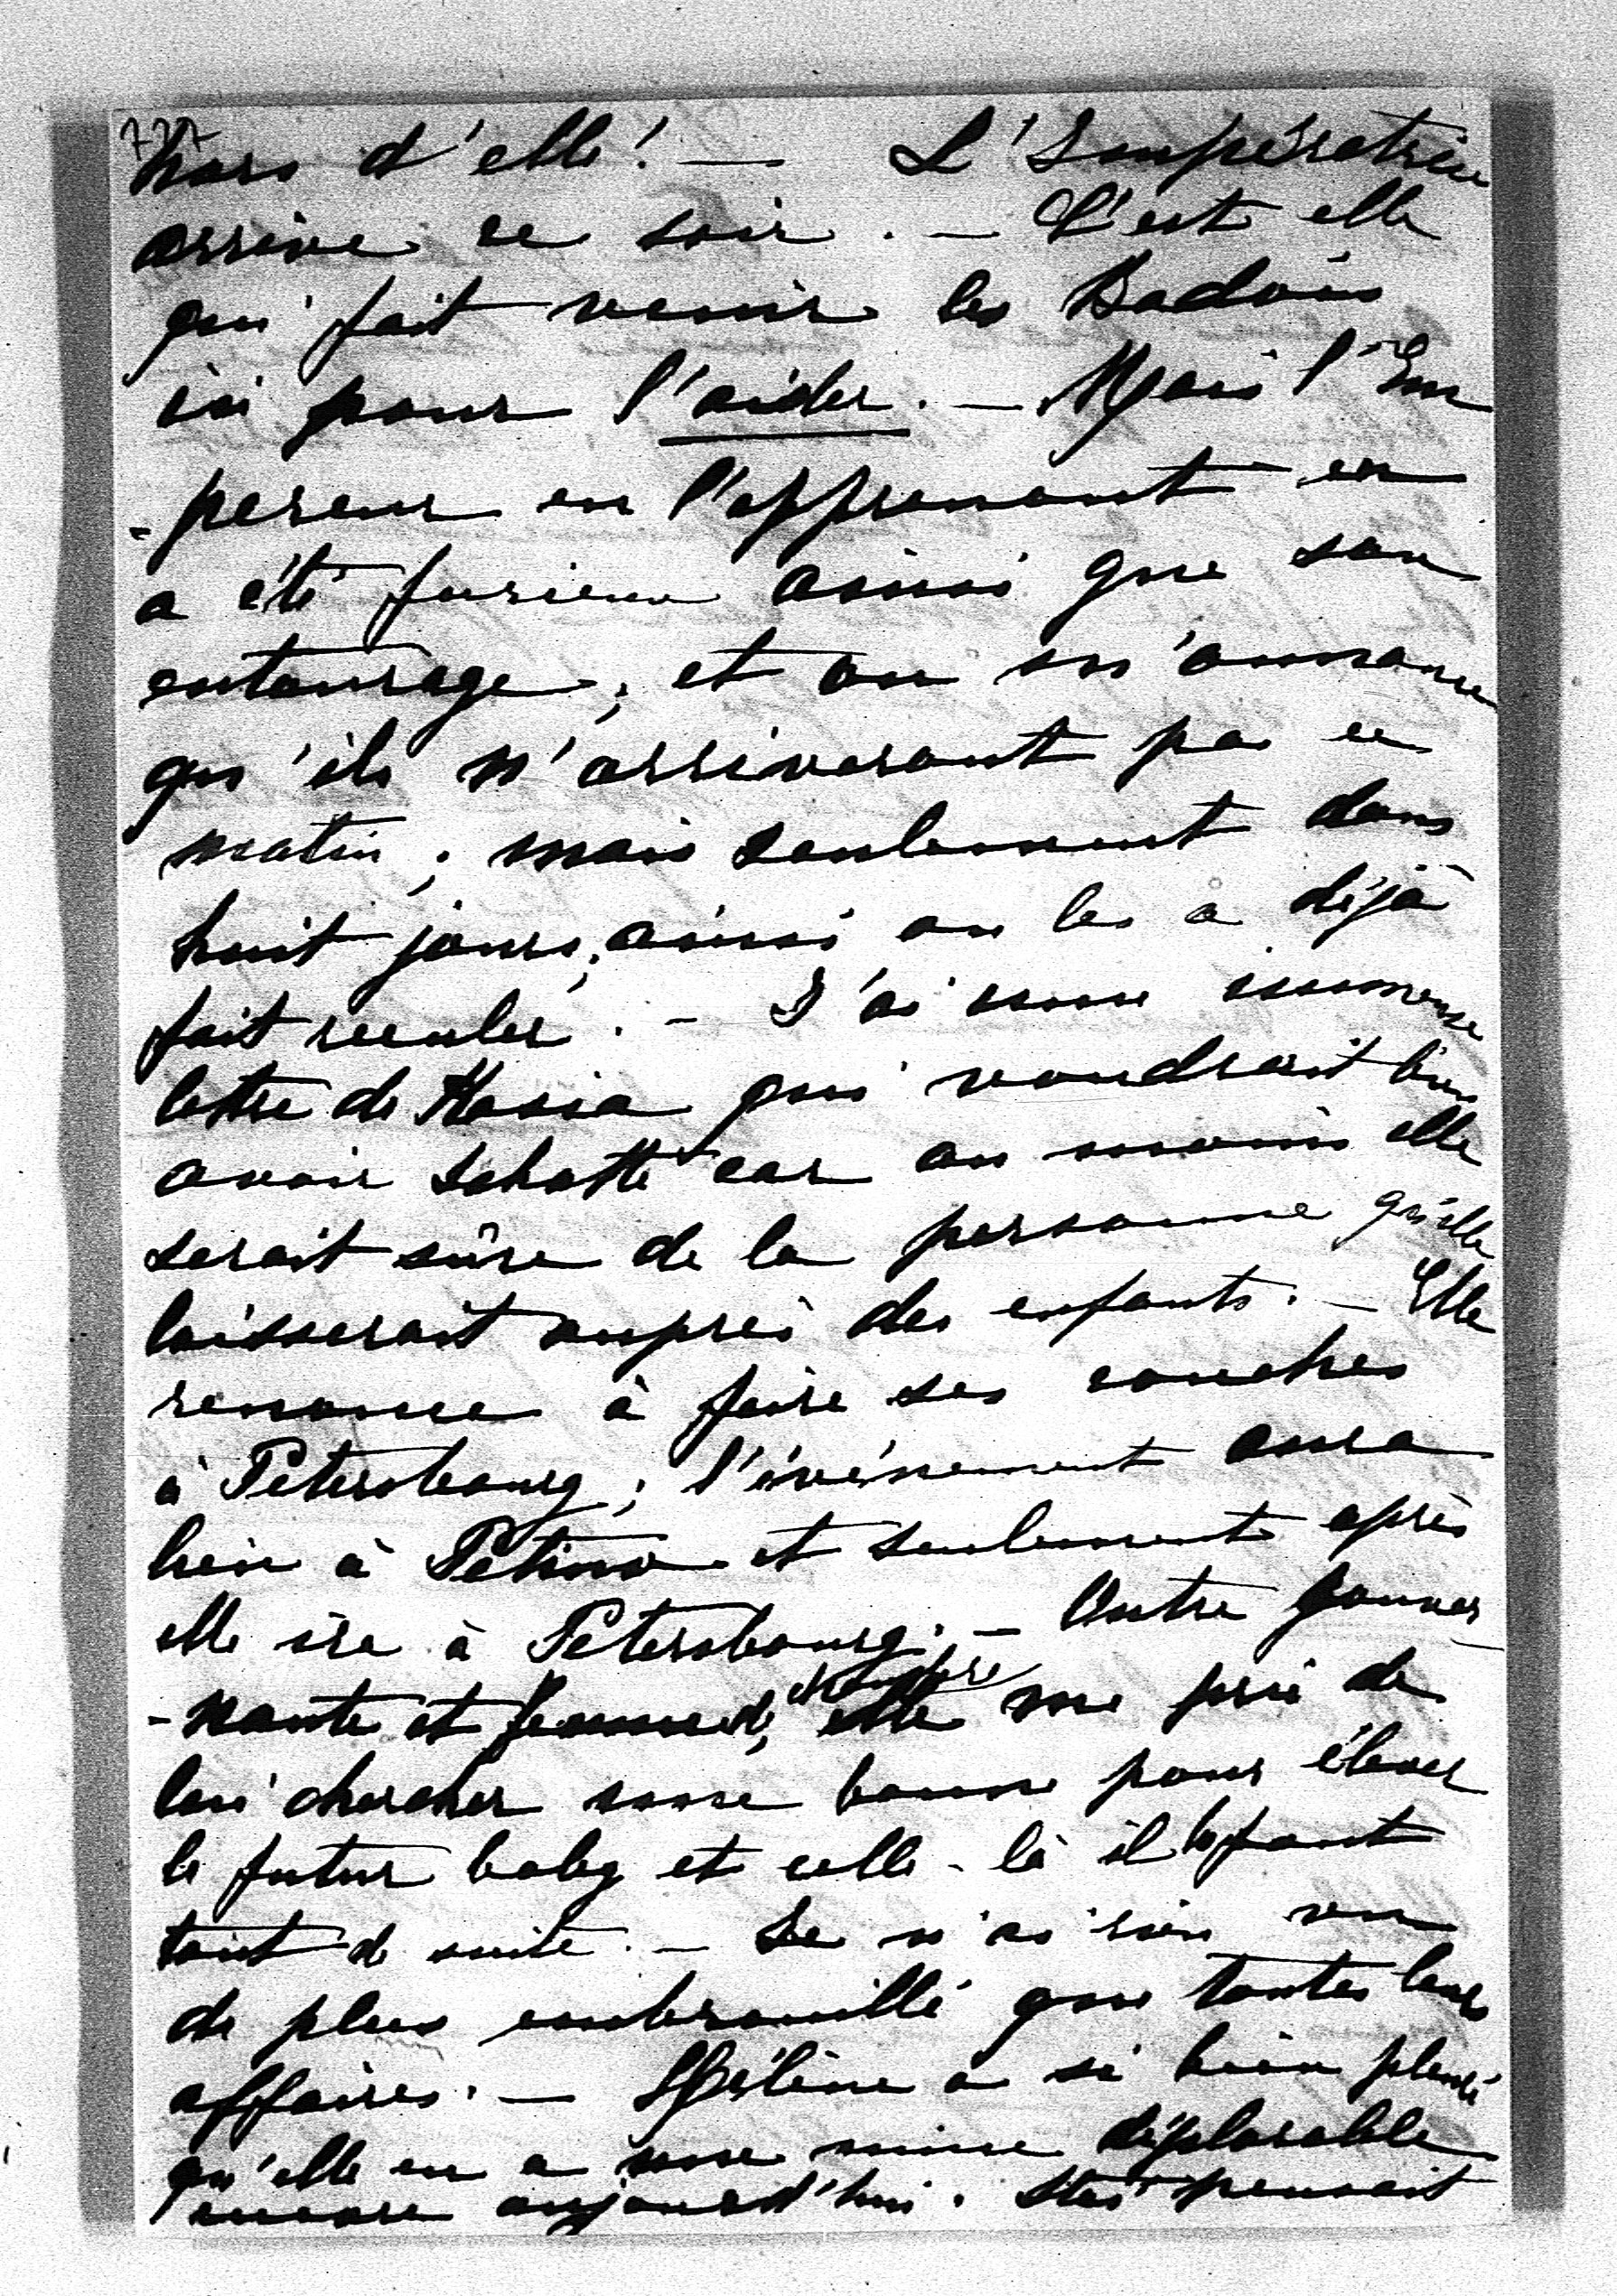 777
hors d'elle! — L'Impératrice
arrive ce soir. — C'est elle
qui fait venir les Badois
ici pour l'aider. — Mais l'Em
-pereur en l'apprenant en
a été furieux ainsi que son
entourage; et on m'annonce
qu'ils n'arriveront pas ce
matin; mais seulement dans
huit jours; ainsi on les a déjà
fait reculer. — J'ai une immense
lettre de Stasia qui voudrait bien
avoir Schotte car au moins elle
serait sûre de la personne qu'elle
laisserait auprès des enfants. — Elle
renonce à faire ses couches
à Petersbourg; l'événement aura
lieu à et seulement après
elle ira à Petersbourg. — Outre gouver
-nante et femme de chambre elle me prie de
lui chercher une bonne pour élever
le futur baby et celle-là il la faut
tout de suite. — Je n'ai rien vu
de plus embrouillé que toutes leurs
affaires. — Hélène a si bien pleuré
qu'elle en a une mine déplorable
encore aujourd'hui. pensait